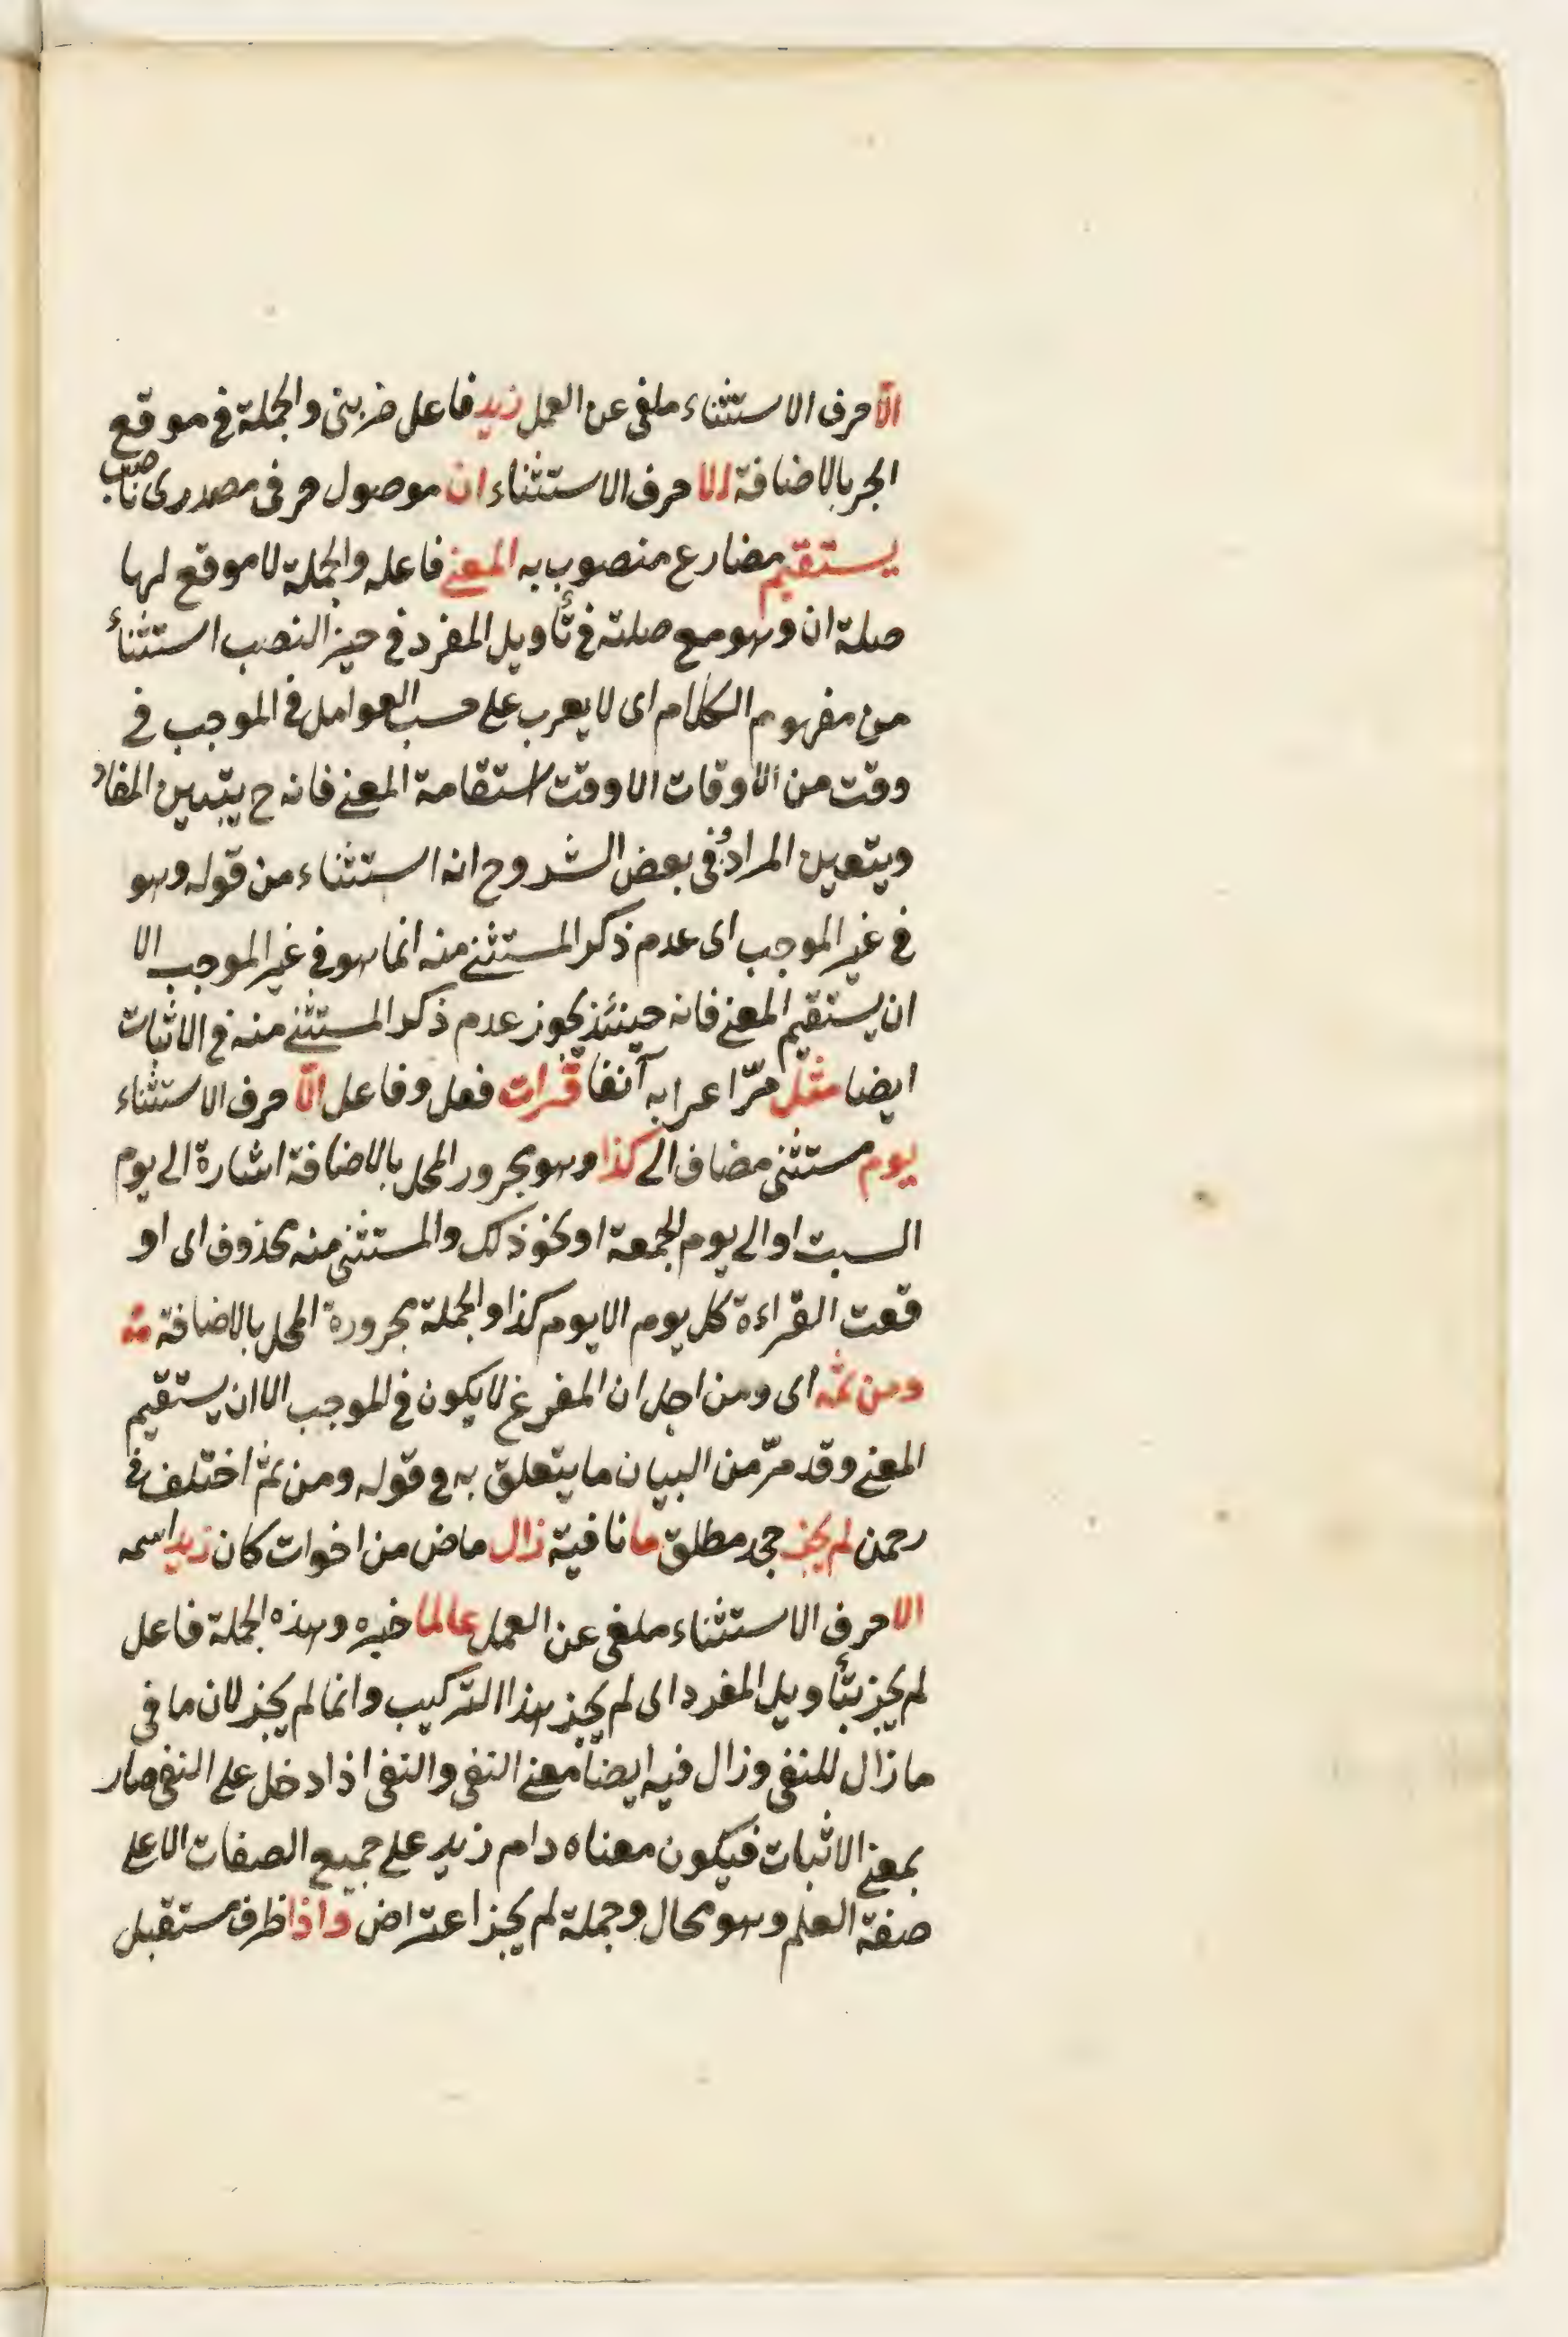 الّا حرف الاستثناء ملغى عن العمل زيد فاعل ضربنى والجملة فى موقع
الجر بالاضافة الا حرف الاستثناء ان موصول حرفى مصدرى ناصب
يستقيم مضارع منصوب به المعنى فاعله والجملة لا موقع لها
صلة ان وهو مع صلته فى تأويل المفرد فى حيز النصب استثناء
من مفهوم الكلام اى لا يعرب على حسب العوامل فى الموجب فى
وقت من الاوقات الا وقت استقامة المعنى فانه ح يتبين المفاد
ويتعين المراد وفى بعض الشروح انه استثناء من قوله وهو
فى غير الموجب اى عدم ذكر المستثنى منه انما هو فى غير الموجب الا
ان يستقيم المعنى فانه حينئذ يجوز عدم ذكر المستثنى منه فى الاثبات
ايضا مثل مرّ اعرابه آنفا قرات فعل وفاعل الّا حرف الاستثناء
يوم مستثنى مضاف الى كذا وهو مجرور المحل بالاضافة اشارة الى يوم
السبت او الى يوم الجمعة او نحو ذلك والمستثنى منه محذوف اى او
قعت القراءة كل يوم الا يوم كذا والجملة مجرورة المحل بالاضافة
ومن ثمه اى ومن اجل ان المفرغ لا يكون فى الموجب الا ان يستقيم
المعنى وقد مرّ من البيان ما يتعلق به فى قوله ومن ثمّ اختلف فى
رحمن لم يجز جحد مطلق ما نافية زال ماض من اخوات كان زيد اسمه
الا حرف الاستثناء ملغى عن العمل عالما خبره وهذه الجملة فاعل
لم يجز بتأويل المفرد اى لم يجز هذا التركيب وانما لم يجز لان ما فى
ما زال للنفى وزال فيه ايضا معنى النفى والنفى اذا دخل على النفى صار
بمعنى الاثبات فيكون معناه دام زيد على جميع الصفات الا على
صفة العلم وهو محال وجملة لم يجز اعتراض واذا ظرف مستقبل